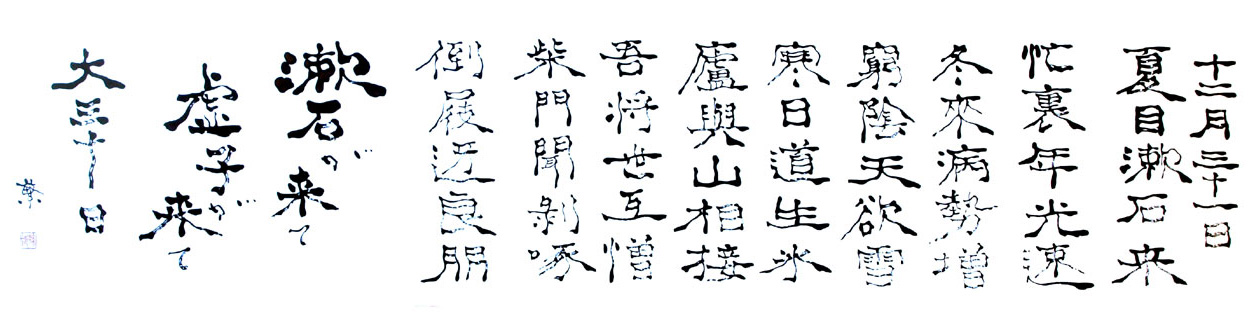 十二月三十一日
夏目漱石来
忙裏年光速
冬來病勢増
窮陰天欲雪
寒日道生氷
廬與山相接
吾将世互憎
柴門聞剝啄
倒屐迎良朋
漱石が来て
虚子が来て
大三十日